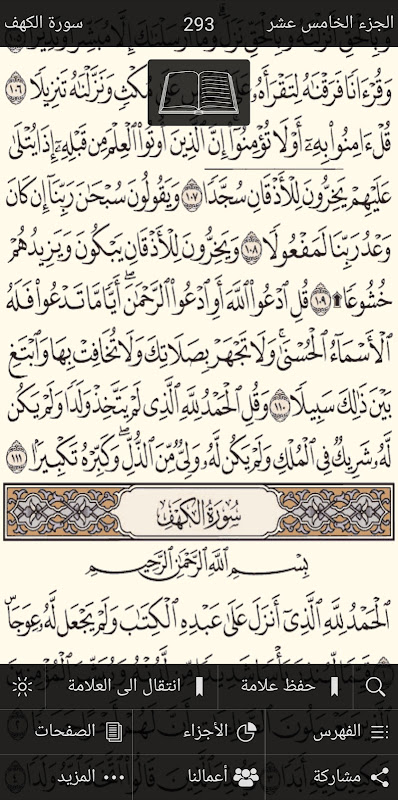 الجزء الخامس عشر
293
سورة الكهف
وَقُرْءَانًا فَرَقْنَٰهُ لِتَقْرَأَهُۥ مُكْثٍ وَنَزَّلْنَٰهُ تَنزِيلًا ١٠٦
قُلْ ءَامِنُوا۟ بِهِۦٓ أَوْ لَا تُؤْمِنُوٓا۟ إِنَّ ٱلَّذِينَ أُوتُوا۟ ٱلْعِلْمَ مِن قَبْلِهِۦٓ إِذَا يُتْلَىٰ
عَلَيْهِمْ يَخِرُّونَ لِلْأَذْقَانِ سُجَّدًا ١٠٧ وَيَقُولُونَ سُبْحَٰنَ رَبِّنَآ إِن كَانَ
وَعْدُ رَبِّنَا لَمَفْعُولًا ١٠٨ وَيَخِرُّونَ لِلْأَذْقَانِ يَبْكُونَ وَيَزِيدُهُمْ
خُشُوعًا ۩ ١٠٩ قُلِ ٱدْعُوا۟ ٱللَّهَ أَوِ ٱدْعُوا۟ ٱلرَّحْمَٰنَ ۖ أَيًّا مَّا تَدْعُوا۟ فَلَهُ
ٱلْأَسْمَآءُ ٱلْحُسْنَىٰ ۚ وَلَا تَجْهَرْ بِصَلَاتِكَ وَلَا تُخَافِتْ بِهَا وَٱبْتَغِ
بَيْنَ ذَٰلِكَ سَبِيلًا ١١٠ وَقُلِ ٱلْحَمْدُ لِلَّهِ ٱلَّذِى لَمْ يَتَّخِذْ وَلَدًا وَلَمْ يَكُن
لَّهُۥ شَرِيكٌ فِى ٱلْمُلْكِ وَلَمْ يَكُن لَّهُۥ وَلِىٌّ مِّنَ ٱلذُّلِّ ۖ وَكَبِّرْهُ تَكْبِيرًۢا ١١١
سُورَةُ الكَهْفِ
بِسْمِ ٱللَّهِ ٱلرَّحْمَٰنِ ٱلرَّحِيمِ
ٱلْحَمْدُ لِلَّهِ ٱلَّذِىٓ أَنزَلَ عَلَىٰ عَبْدِهِ ٱلْكِتَٰبَ وَلَمْ يَجْعَل لَّهُۥ عِوَجَا ۜ
حفظ علامة
انتقال الى العلامة
الفهرس
الأجزاء
الصفحات
مشاركة
أعمالنا
المزيد